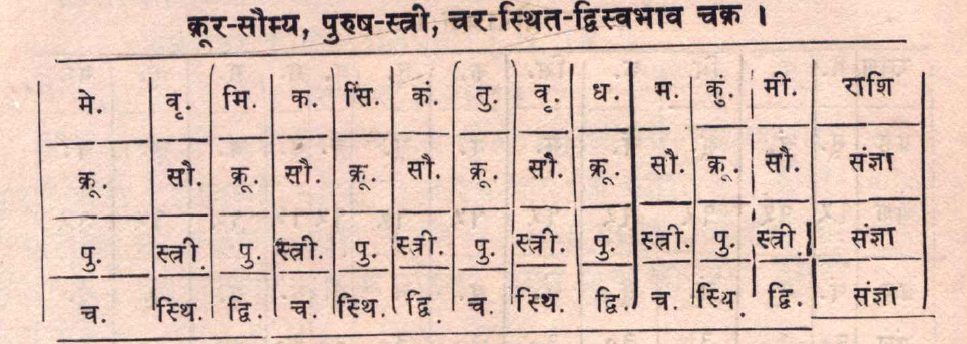 क्रूर-सौम्य, पुरुष-स्त्री, चर-स्थित-द्विस्वभाव चक्र ।
मे. वृ. मि. क. सिं. कं. तु. वृ. ध. म. कुं. मी. राशि
क्रू. सौ. क्रू. सौ. क्रू. सौ. क्रू. सौ. क्रू. सौ. क्रू. सौ. संज्ञा
पु. स्त्री. पु. स्त्री. पु. स्त्री. पु. स्त्री. पु. स्त्री. पु. स्त्री. संज्ञा
च. स्थि. द्वि. च. स्थि. द्वि. च. स्थि. द्वि. च. स्थि. द्वि. संज्ञा